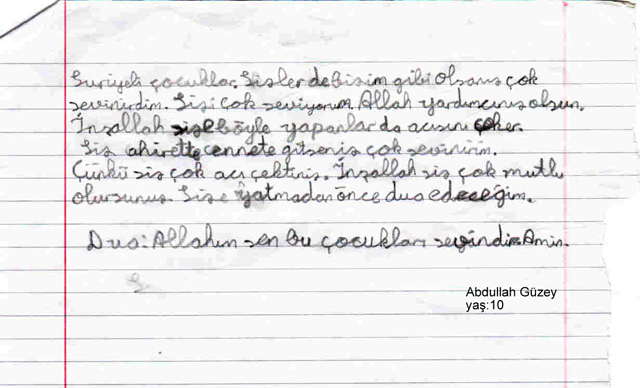 Suriyeli çocuklar. Sisler de bisim gibi olsanıs çok
sevinirdim. Sisi çok seviyorum. Allah yardımcınıs olsun.
İnşallah sise böyle yapanlar da acısını çeker.
Sis ahirette cennete gitsenis çok sevinirim.
Çünkü sis çok acı çektinis. İnşallah sis çok mutlu
olursunus. Sise yatmadan önce dua edeceğim.
Dua: Allahım sen bu çocukları sevindir. Amin.
Abdullah Güzey
yaş:10